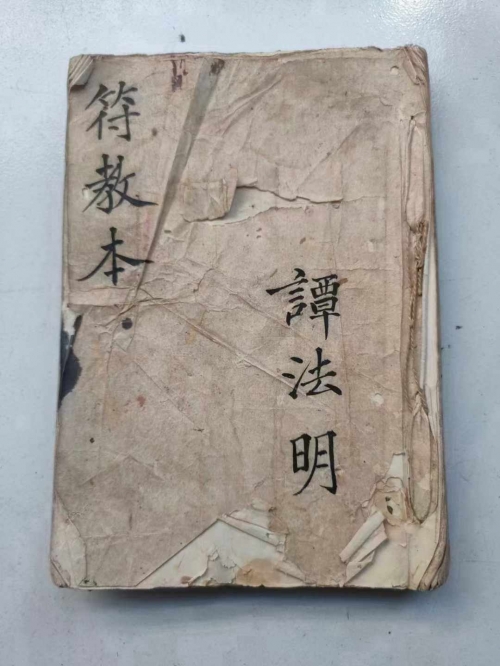 符教本
譚法明